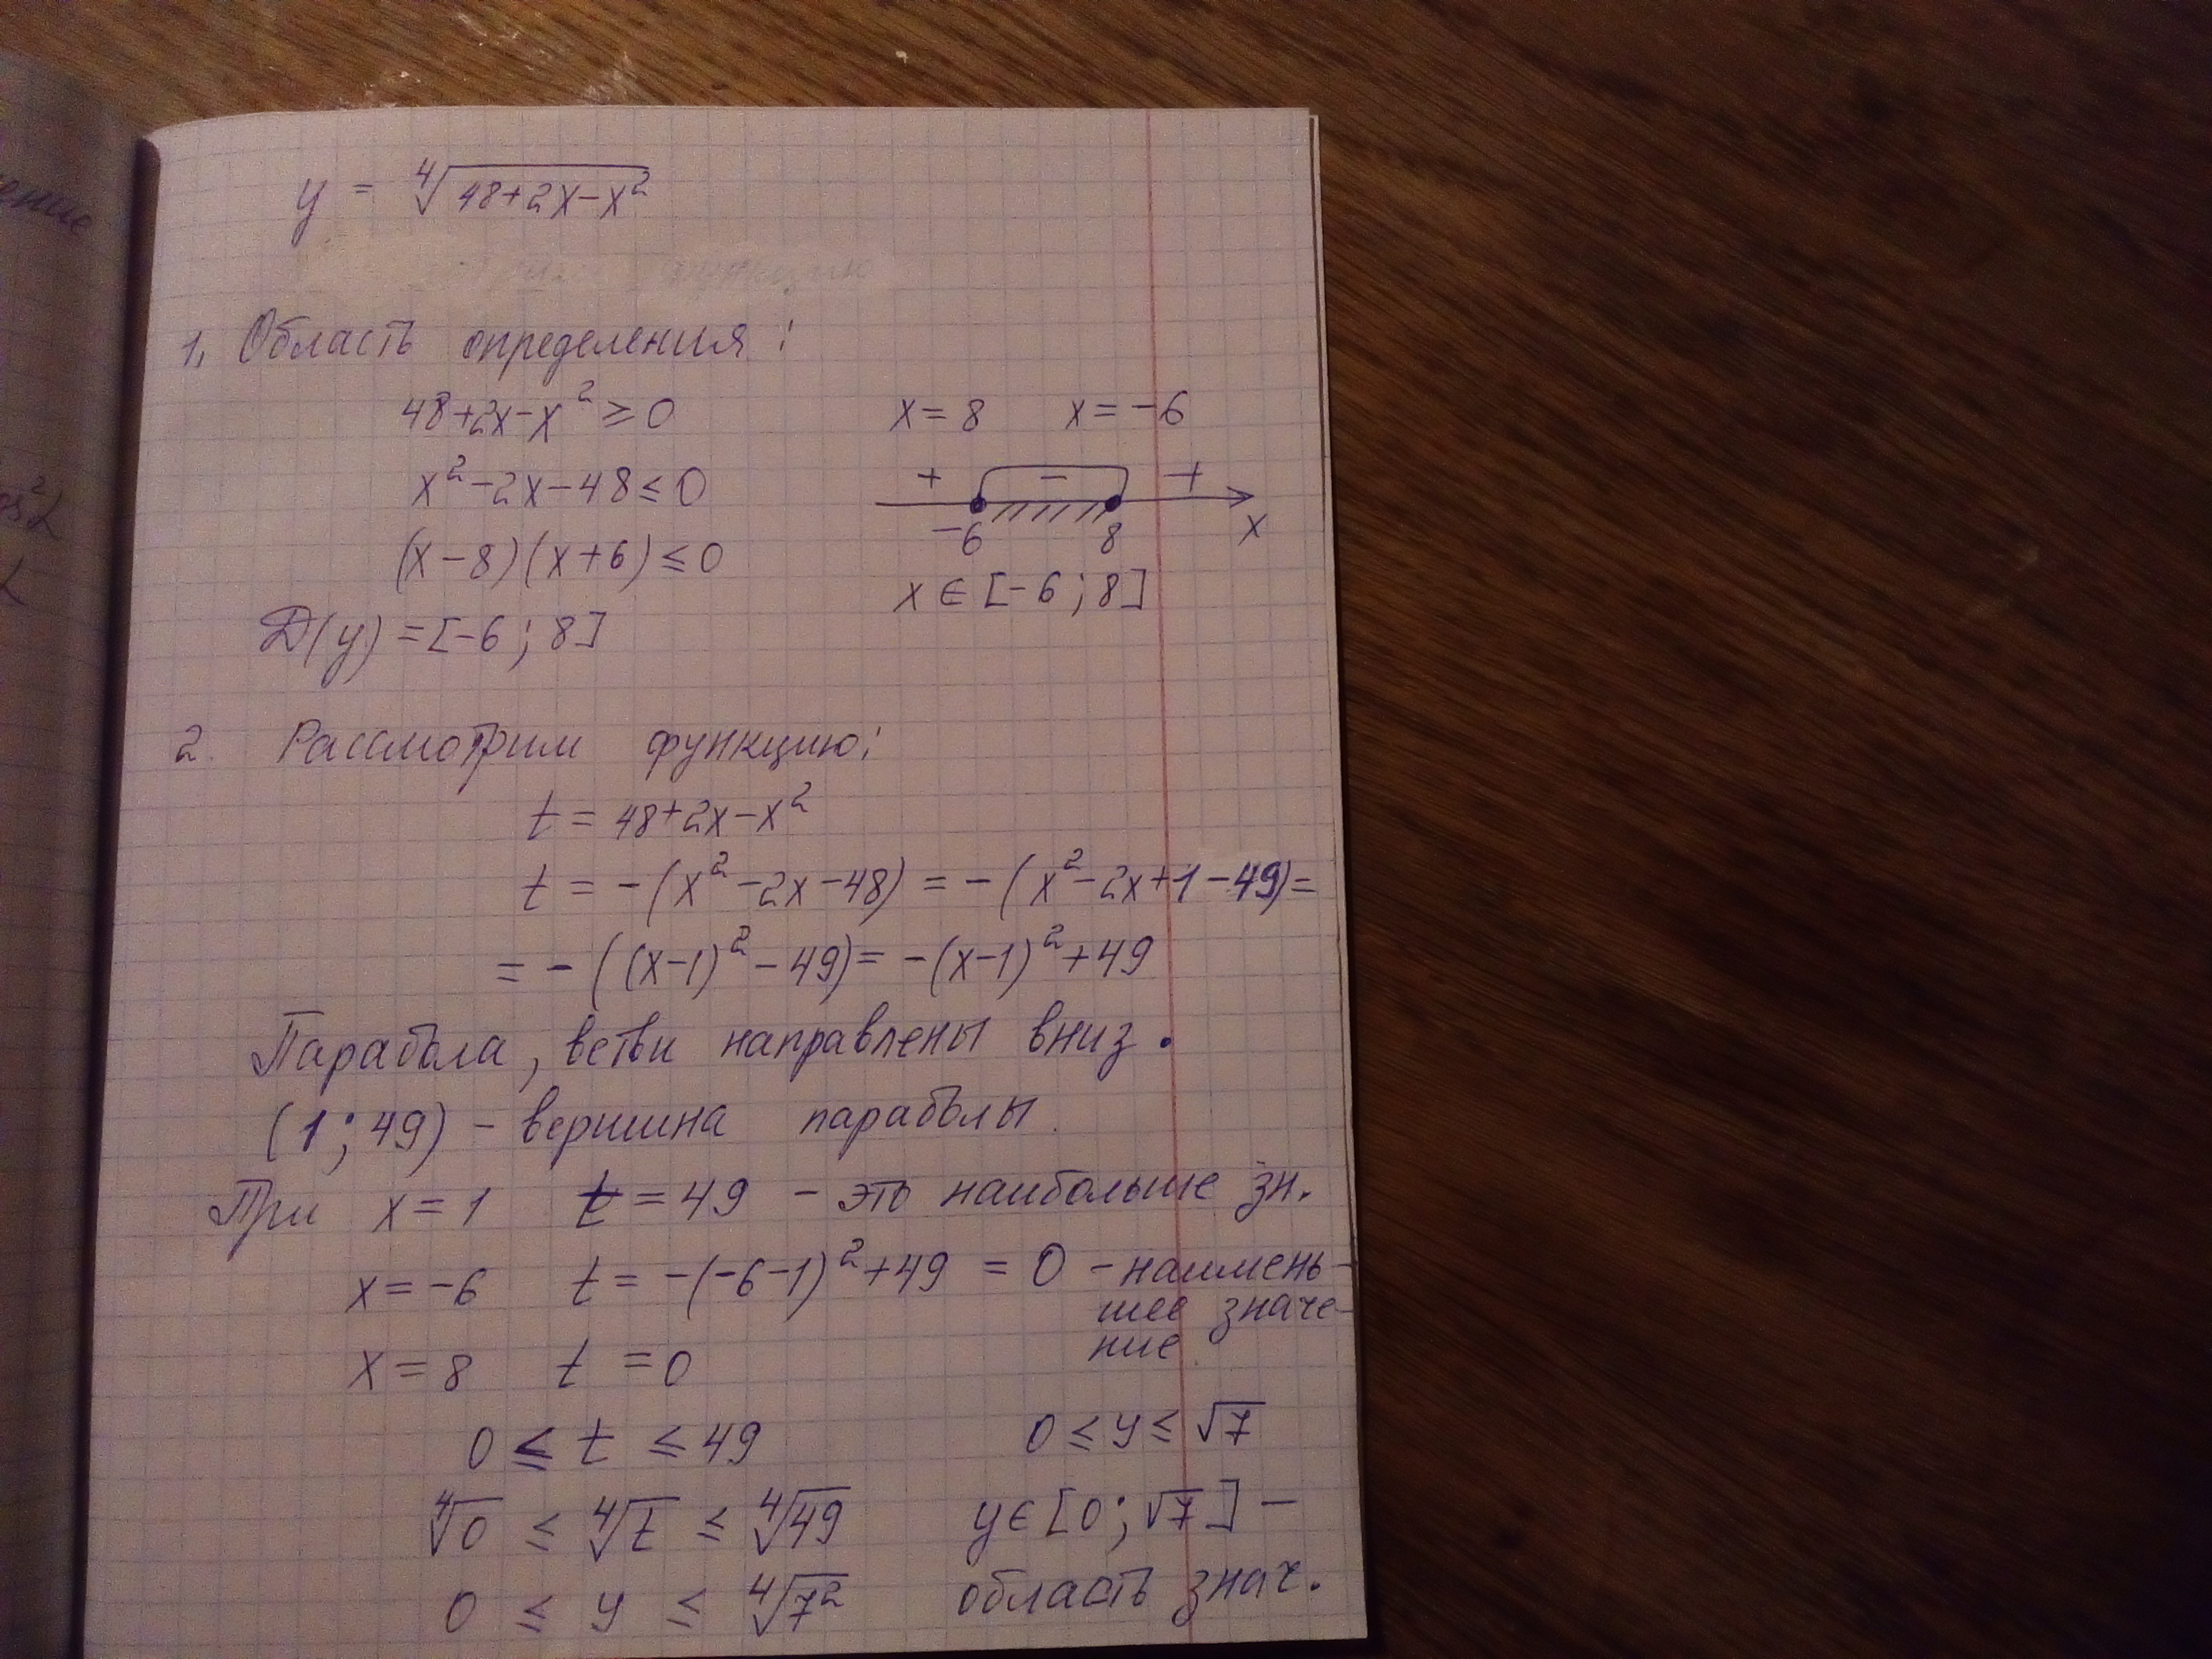 y = ∜(48+2x-x²)
1. Область определения:
48+2x-x² ≥ 0
x=8 x=-6
x²-2x-48 ≤ 0
+ - +
-6 8 x
(x-8)(x+6) ≤ 0
x ∈ [-6; 8]
D(y) = [-6; 8]
2. Рассмотрим функцию:
t = 48+2x-x²
t = -(x²-2x-48) = -(x²-2x+1-49) =
= -((x-1)²-49) = -(x-1)²+49
Парабола, ветви направлены вниз.
(1; 49) - вершина параболы.
При x=1 t=49 - это наибольше зн.
x=-6 t = -(-6-1)²+49 = 0 - наимень-
шее значе-
ние
x=8 t=0
0 ≤ t ≤ 49
0 ≤ y ≤ √7
∜0 ≤ ∜t ≤ ∜49
y ∈ [0; √7] -
0 ≤ y ≤ ∜7²
область знач.